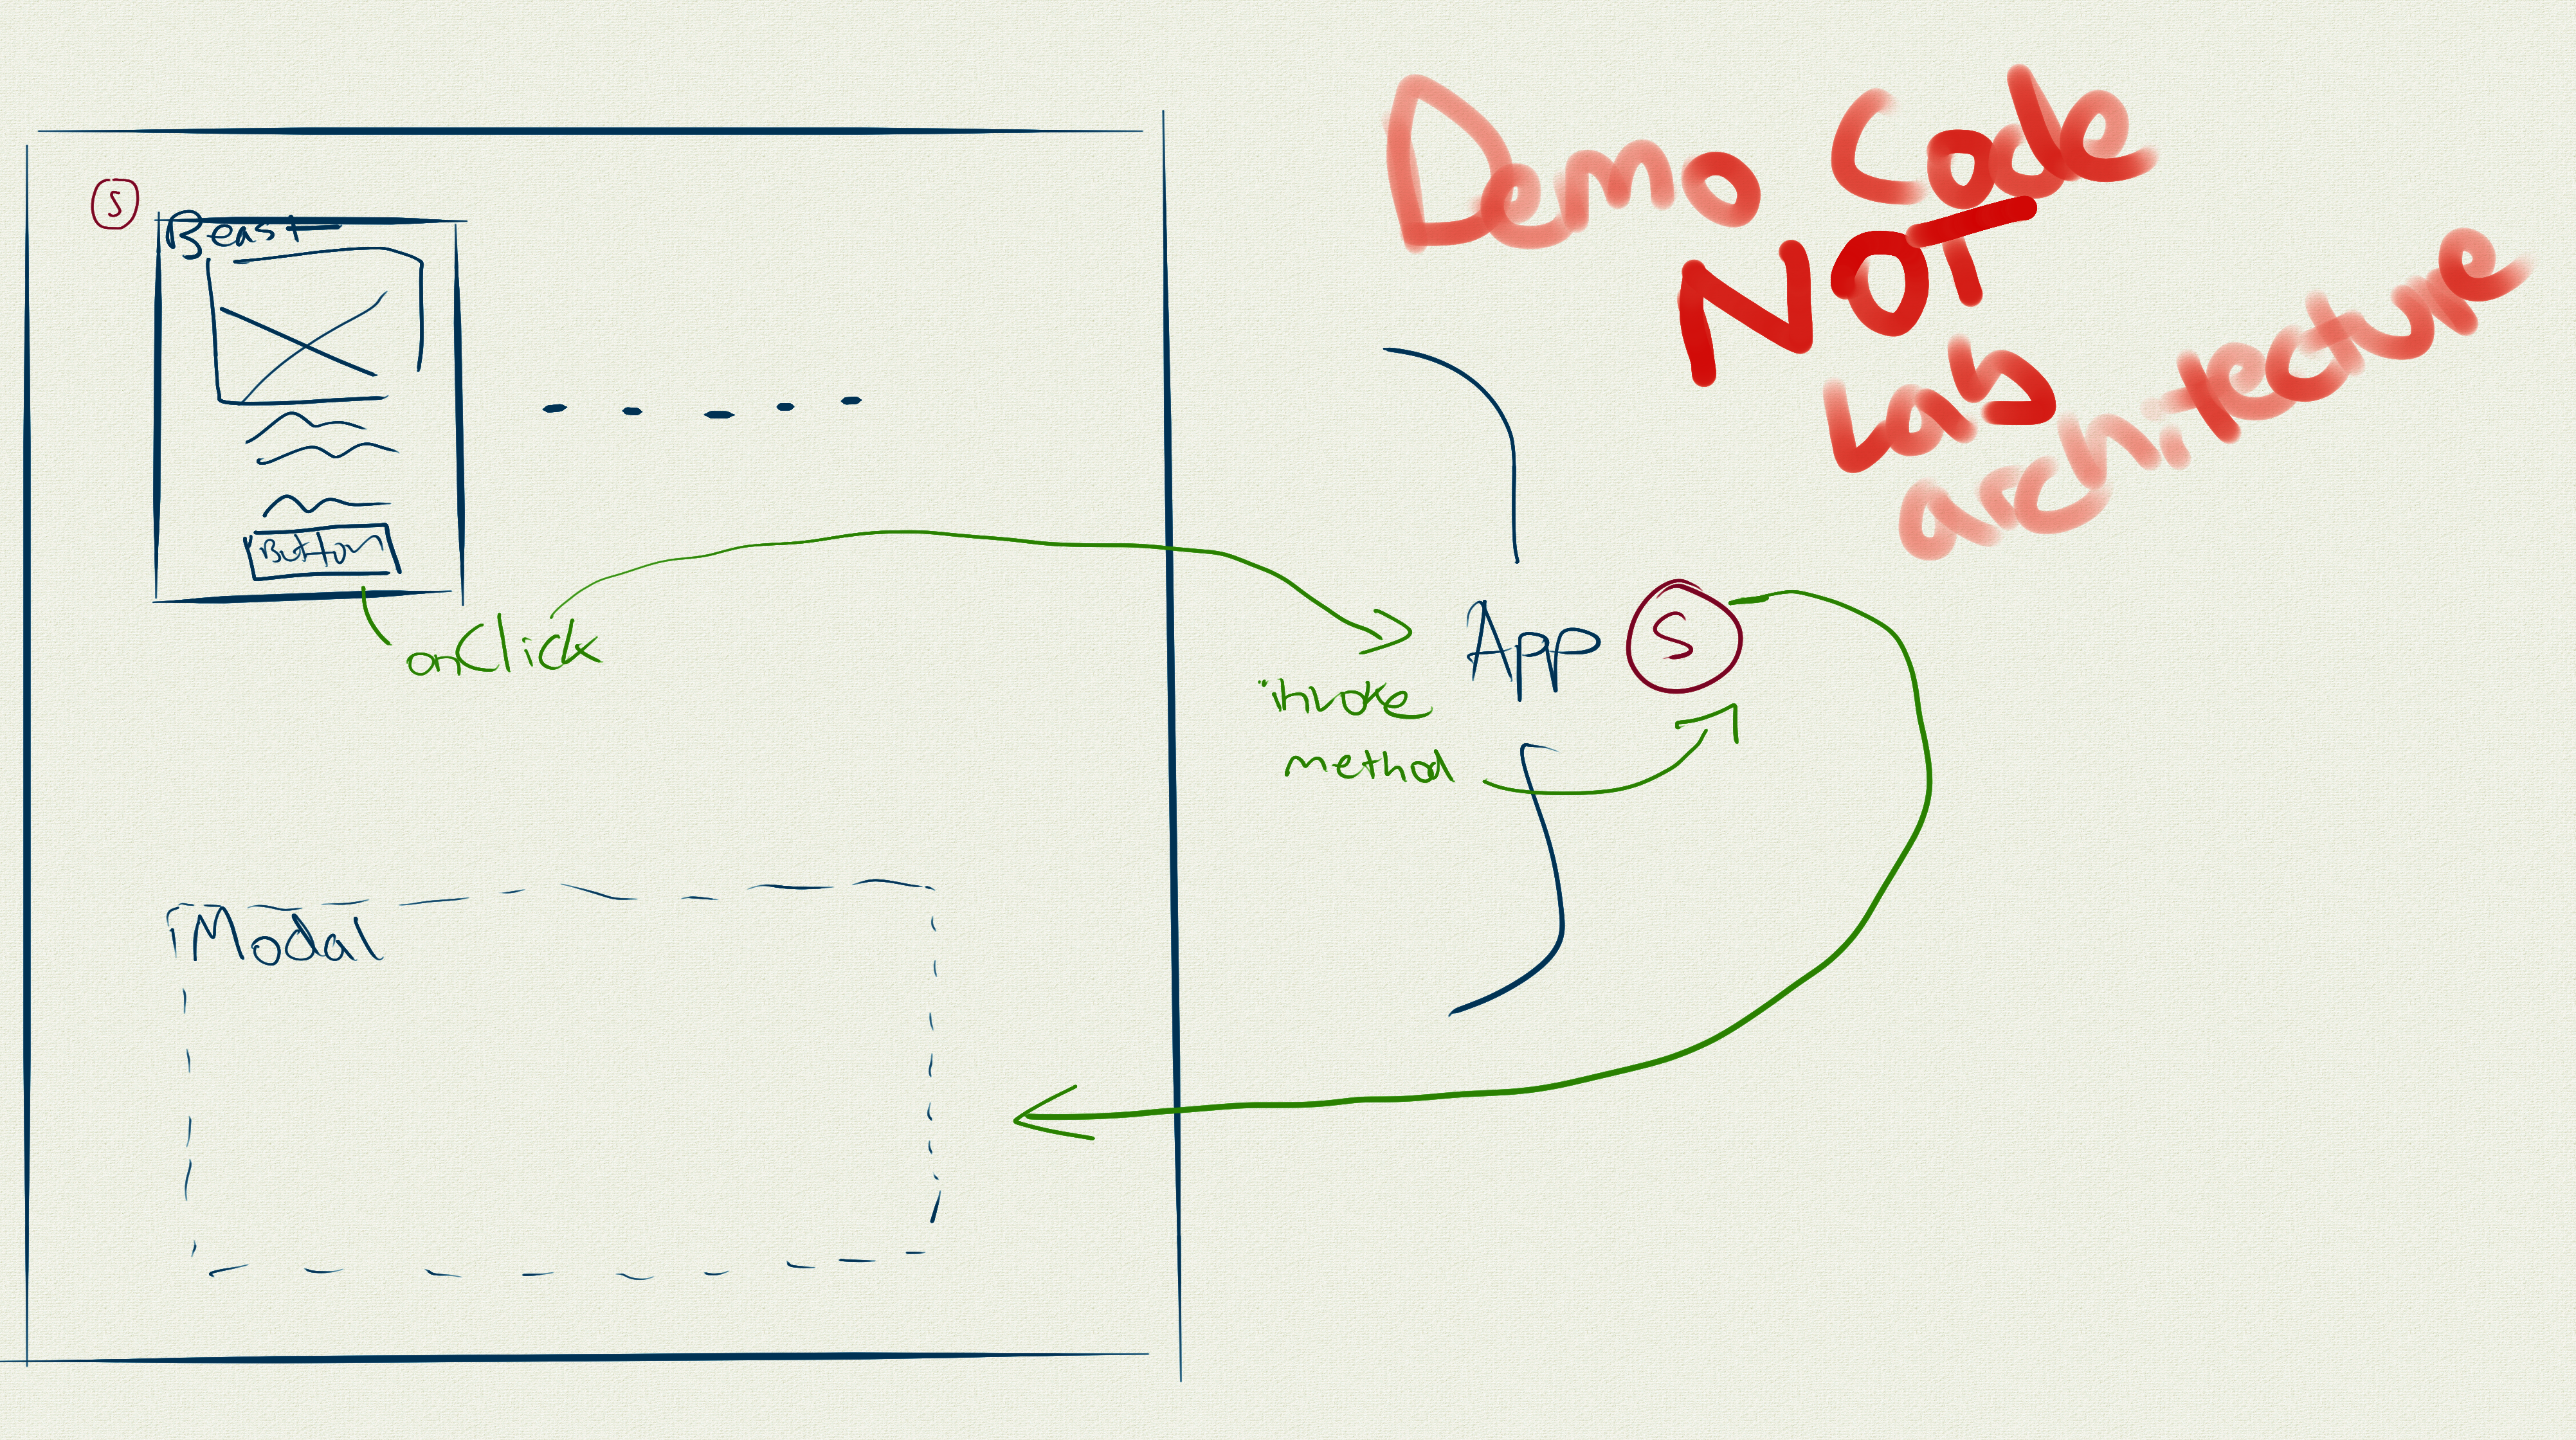 Demo Code
NOT
Lab
architecture
S
Beast
Button
onClick
App S
invoke
method
Modal